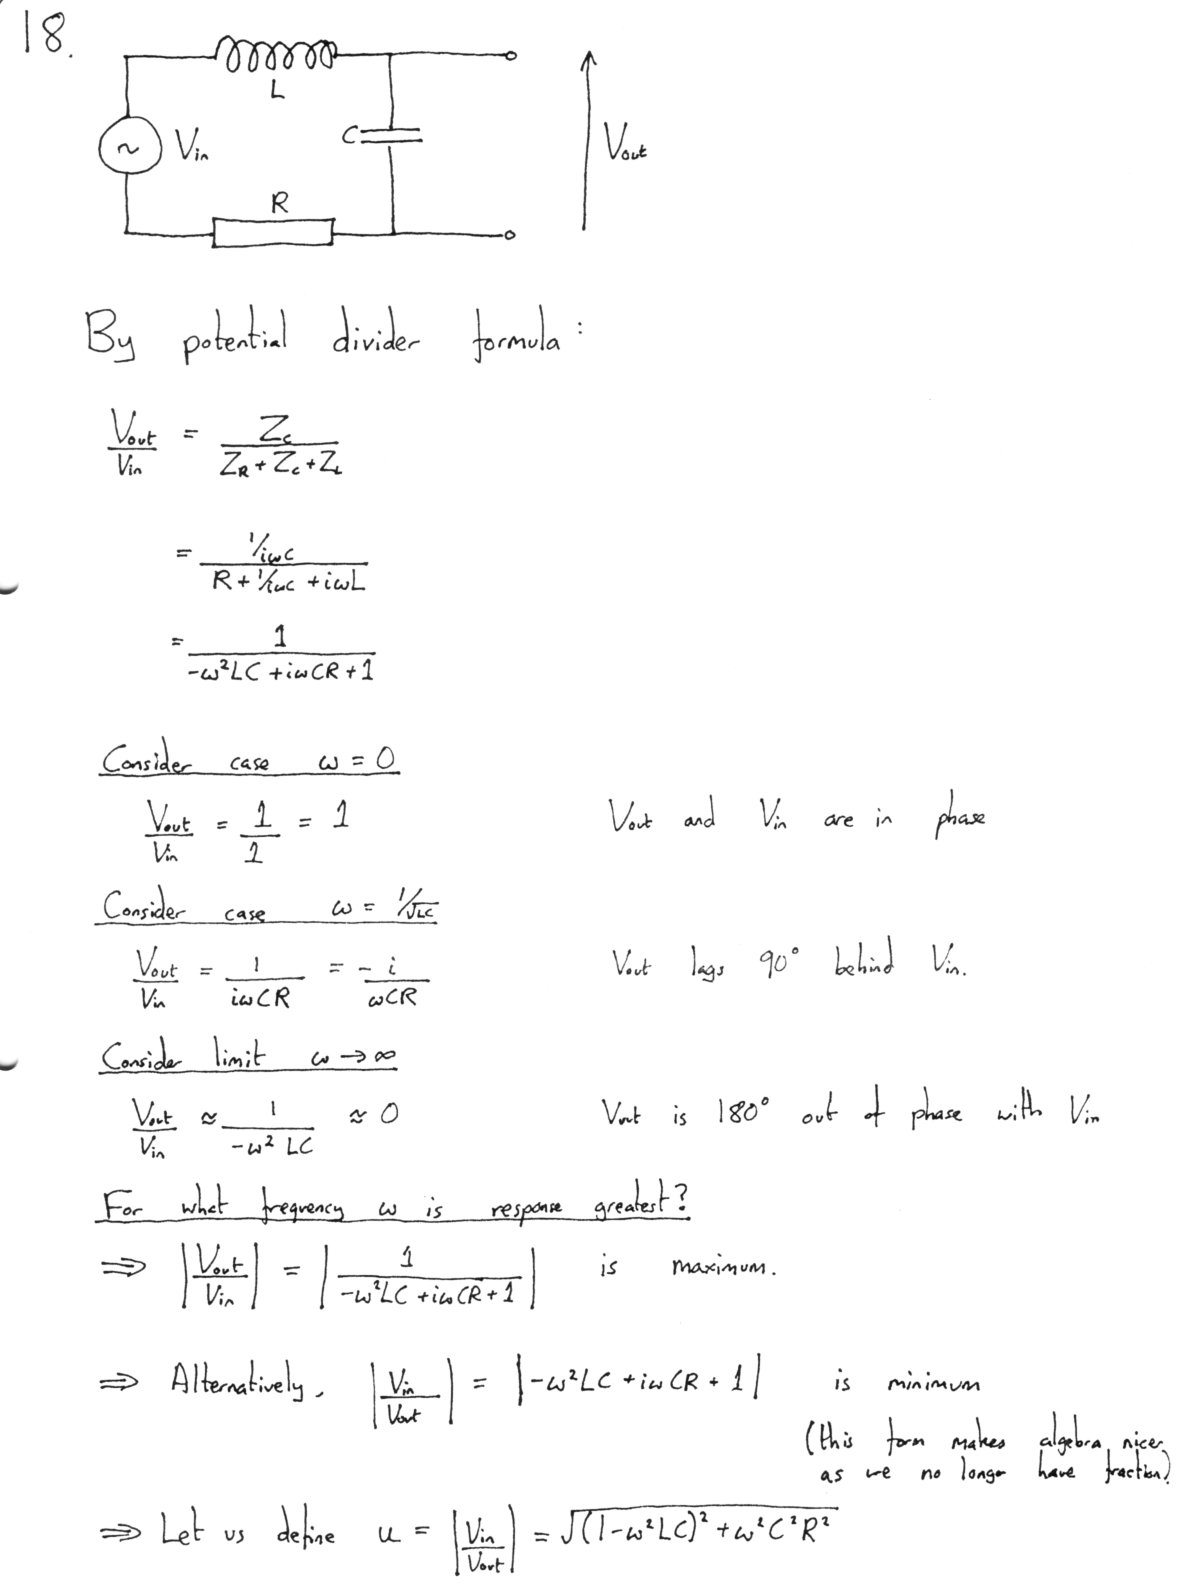 18.
L
V_in
C
V_out
R
By potential divider formula:
V_out/V_in = Z_c/(Z_R + Z_c + Z_L)
= (1/iωC)/(R + 1/iωC + iωL)
= 1/(-ω²LC + iωCR + 1)
Consider case ω = 0
V_out/V_in = 1/1 = 1 V_out and V_in are in phase
Consider case ω = 1/√LC
V_out/V_in = 1/(iωCR) = -i/(ωCR) V_out lags 90° behind V_in.
Consider limit ω → ∞
V_out/V_in ≈ 1/(-ω² LC) ≈ 0 V_out is 180° out of phase with V_in
For what frequency ω is response greatest?
⇒ |V_out/V_in| = |1/(-ω²LC + iωCR + 1)| is maximum.
⇒ Alternatively, |V_in/V_out| = |-ω²LC + iωCR + 1| is minimum
(this form makes algebra nicer
as we no longer have fraction)
⇒ Let us define u = |V_in/V_out| = √((1-ω²LC)² + ω²C²R²)